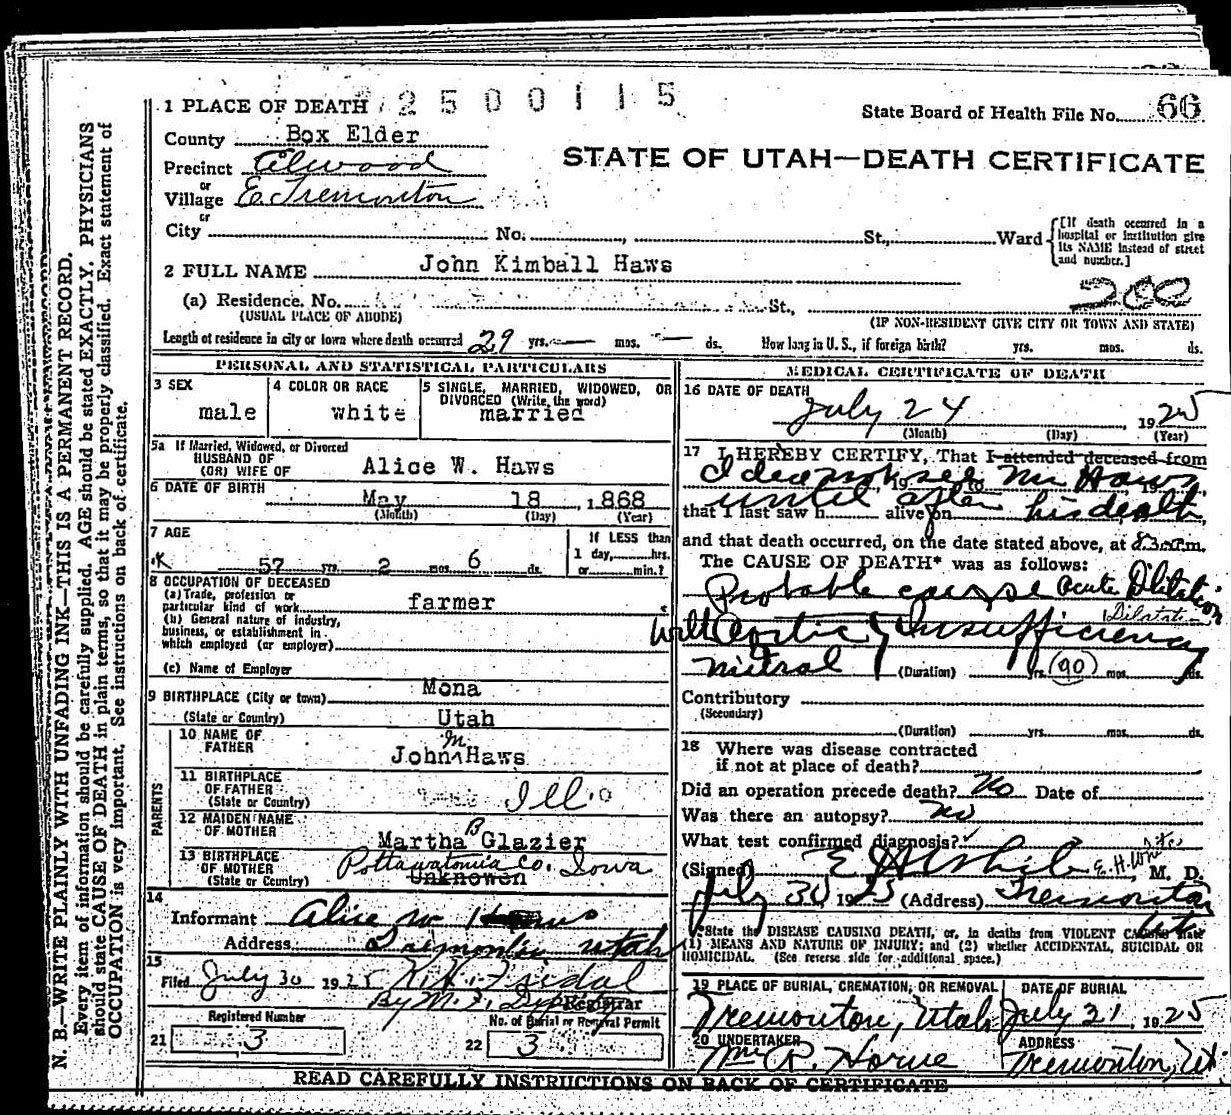 1 PLACE OF DEATH 2500115
State Board of Health File No. 66
County Box Elder
STATE OF UTAH—DEATH CERTIFICATE
Precinct Elwood
or
Village E. Tremonton
or
City No. , St., Ward
[If death occurred in a hospital or institution give its NAME instead of street and number.]
2 FULL NAME John Kimball Haws
200
(a) Residence. No. St.,
(USUAL PLACE OF ABODE) (IF NON-RESIDENT GIVE CITY OR TOWN AND STATE)
Length of residence in city or town where death occurred 29 yrs. — mos. — ds. How long in U. S., if foreign birth? yrs. mos. ds.
PERSONAL AND STATISTICAL PARTICULARS
3 SEX
male
4 COLOR OR RACE
white
5 SINGLE, MARRIED, WIDOWED, OR DIVORCED (Write the word)
married
5a If Married, Widowed, or Divorced
HUSBAND OF
(OR) WIFE OF Alice W. Haws
6 DATE OF BIRTH
May 18, 1868
(Month) (Day) (Year)
7 AGE
57 yrs. 2 mos. 6 ds.
If LESS than
1 day, hrs.
or min.?
8 OCCUPATION OF DECEASED
(a) Trade, profession or
particular kind of work farmer
(b) General nature of industry,
business, or establishment in
which employed (or employer)
(c) Name of Employer
9 BIRTHPLACE (City or town) Mona
(State or Country) Utah
PARENTS
10 NAME OF
FATHER John M Haws
11 BIRTHPLACE
OF FATHER
(State or Country) Ill.
12 MAIDEN NAME
OF MOTHER Martha B Glazier
13 BIRTHPLACE
OF MOTHER Pottawatomia Co. Iowa
(State or Country) Unknowen
14
Informant Alice W. Haws
Address Tremonton Utah
15
Filed July 30 1925
By M. Registrar
Registered Number
21 3
No. of Burial or Removal Permit
22 3
MEDICAL CERTIFICATE OF DEATH
16 DATE OF DEATH
July 24 1925
(Month) (Day) (Year)
17 I HEREBY CERTIFY, That I attended deceased from
I did not see Mr Haws
until after his death
that I last saw h alive on
and that death occurred, on the date stated above, at m.
The CAUSE OF DEATH* was as follows:
Probable cause acute Dilitation
Dilatation
with Aortic & Insufficiency
Mitral (Duration) yrs. (90) mos. ds.
Contributory
(Secondary)
(Duration) yrs. mos. ds.
18 Where was disease contracted
if not at place of death?
Did an operation precede death? No Date of
Was there an autopsy? No
What test confirmed diagnosis?
(Signed) E H White E. H. White, M. D.
July 30 1925 (Address) Tremonton
Ut
*State the DISEASE CAUSING DEATH, or, in deaths from VIOLENT CAUSES state
(1) MEANS AND NATURE OF INJURY; and (2) whether ACCIDENTAL, SUICIDAL OR
HOMICIDAL. (See reverse side for additional space.)
19 PLACE OF BURIAL, CREMATION, OR REMOVAL
Tremonton, Utah
DATE OF BURIAL
July 31, 1925
20 UNDERTAKER
Wm R. Horne
ADDRESS
Tremonton, Ut.
READ CAREFULLY INSTRUCTIONS ON BACK OF CERTIFICATE
N. B.—WRITE PLAINLY WITH UNFADING INK—THIS IS A PERMANENT RECORD.
Every item of information should be carefully supplied. AGE should be stated EXACTLY. PHYSICIANS
should state CAUSE OF DEATH in plain terms, so that it may be properly classified. Exact statement of
OCCUPATION is very important. See instructions on back of certificate.